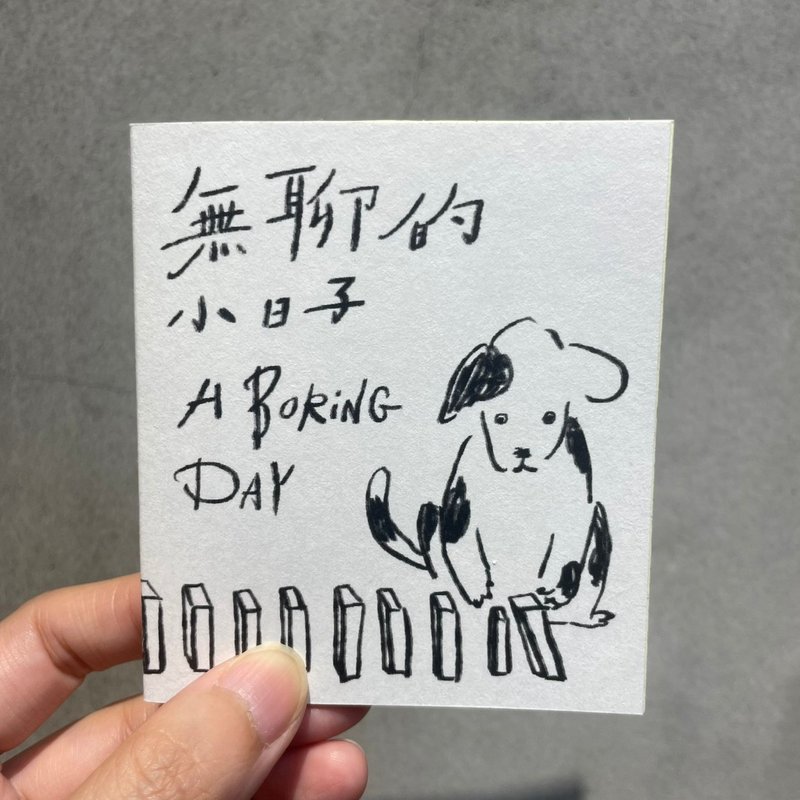 無聊的
小日子
A BORiNG
DAY